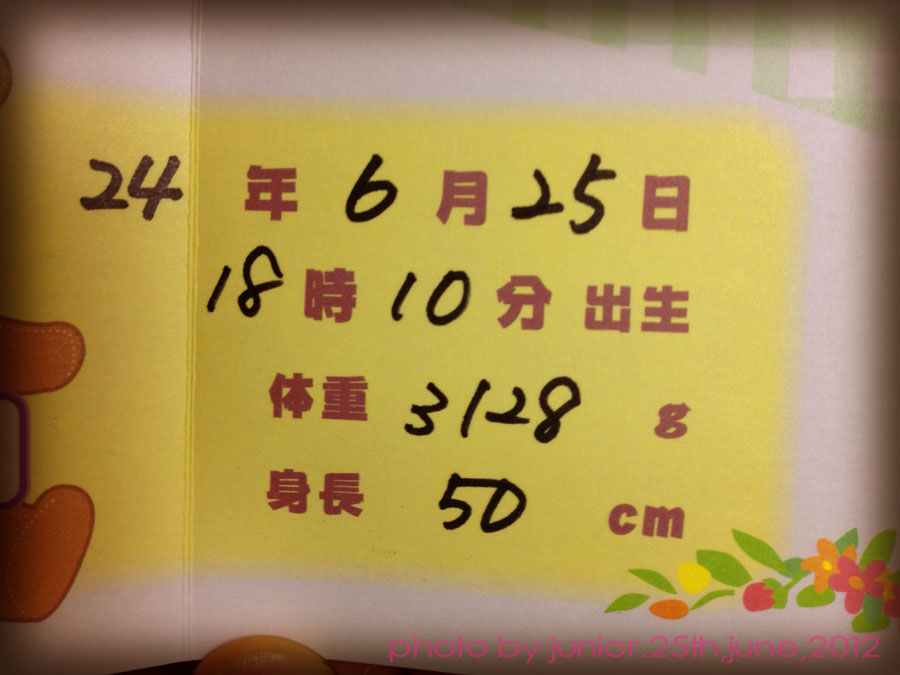 24 年 6 月 25 日
18 時 10 分 出生
体重 3128 g
身長 50 cm
photo by junior.25th,june,2012